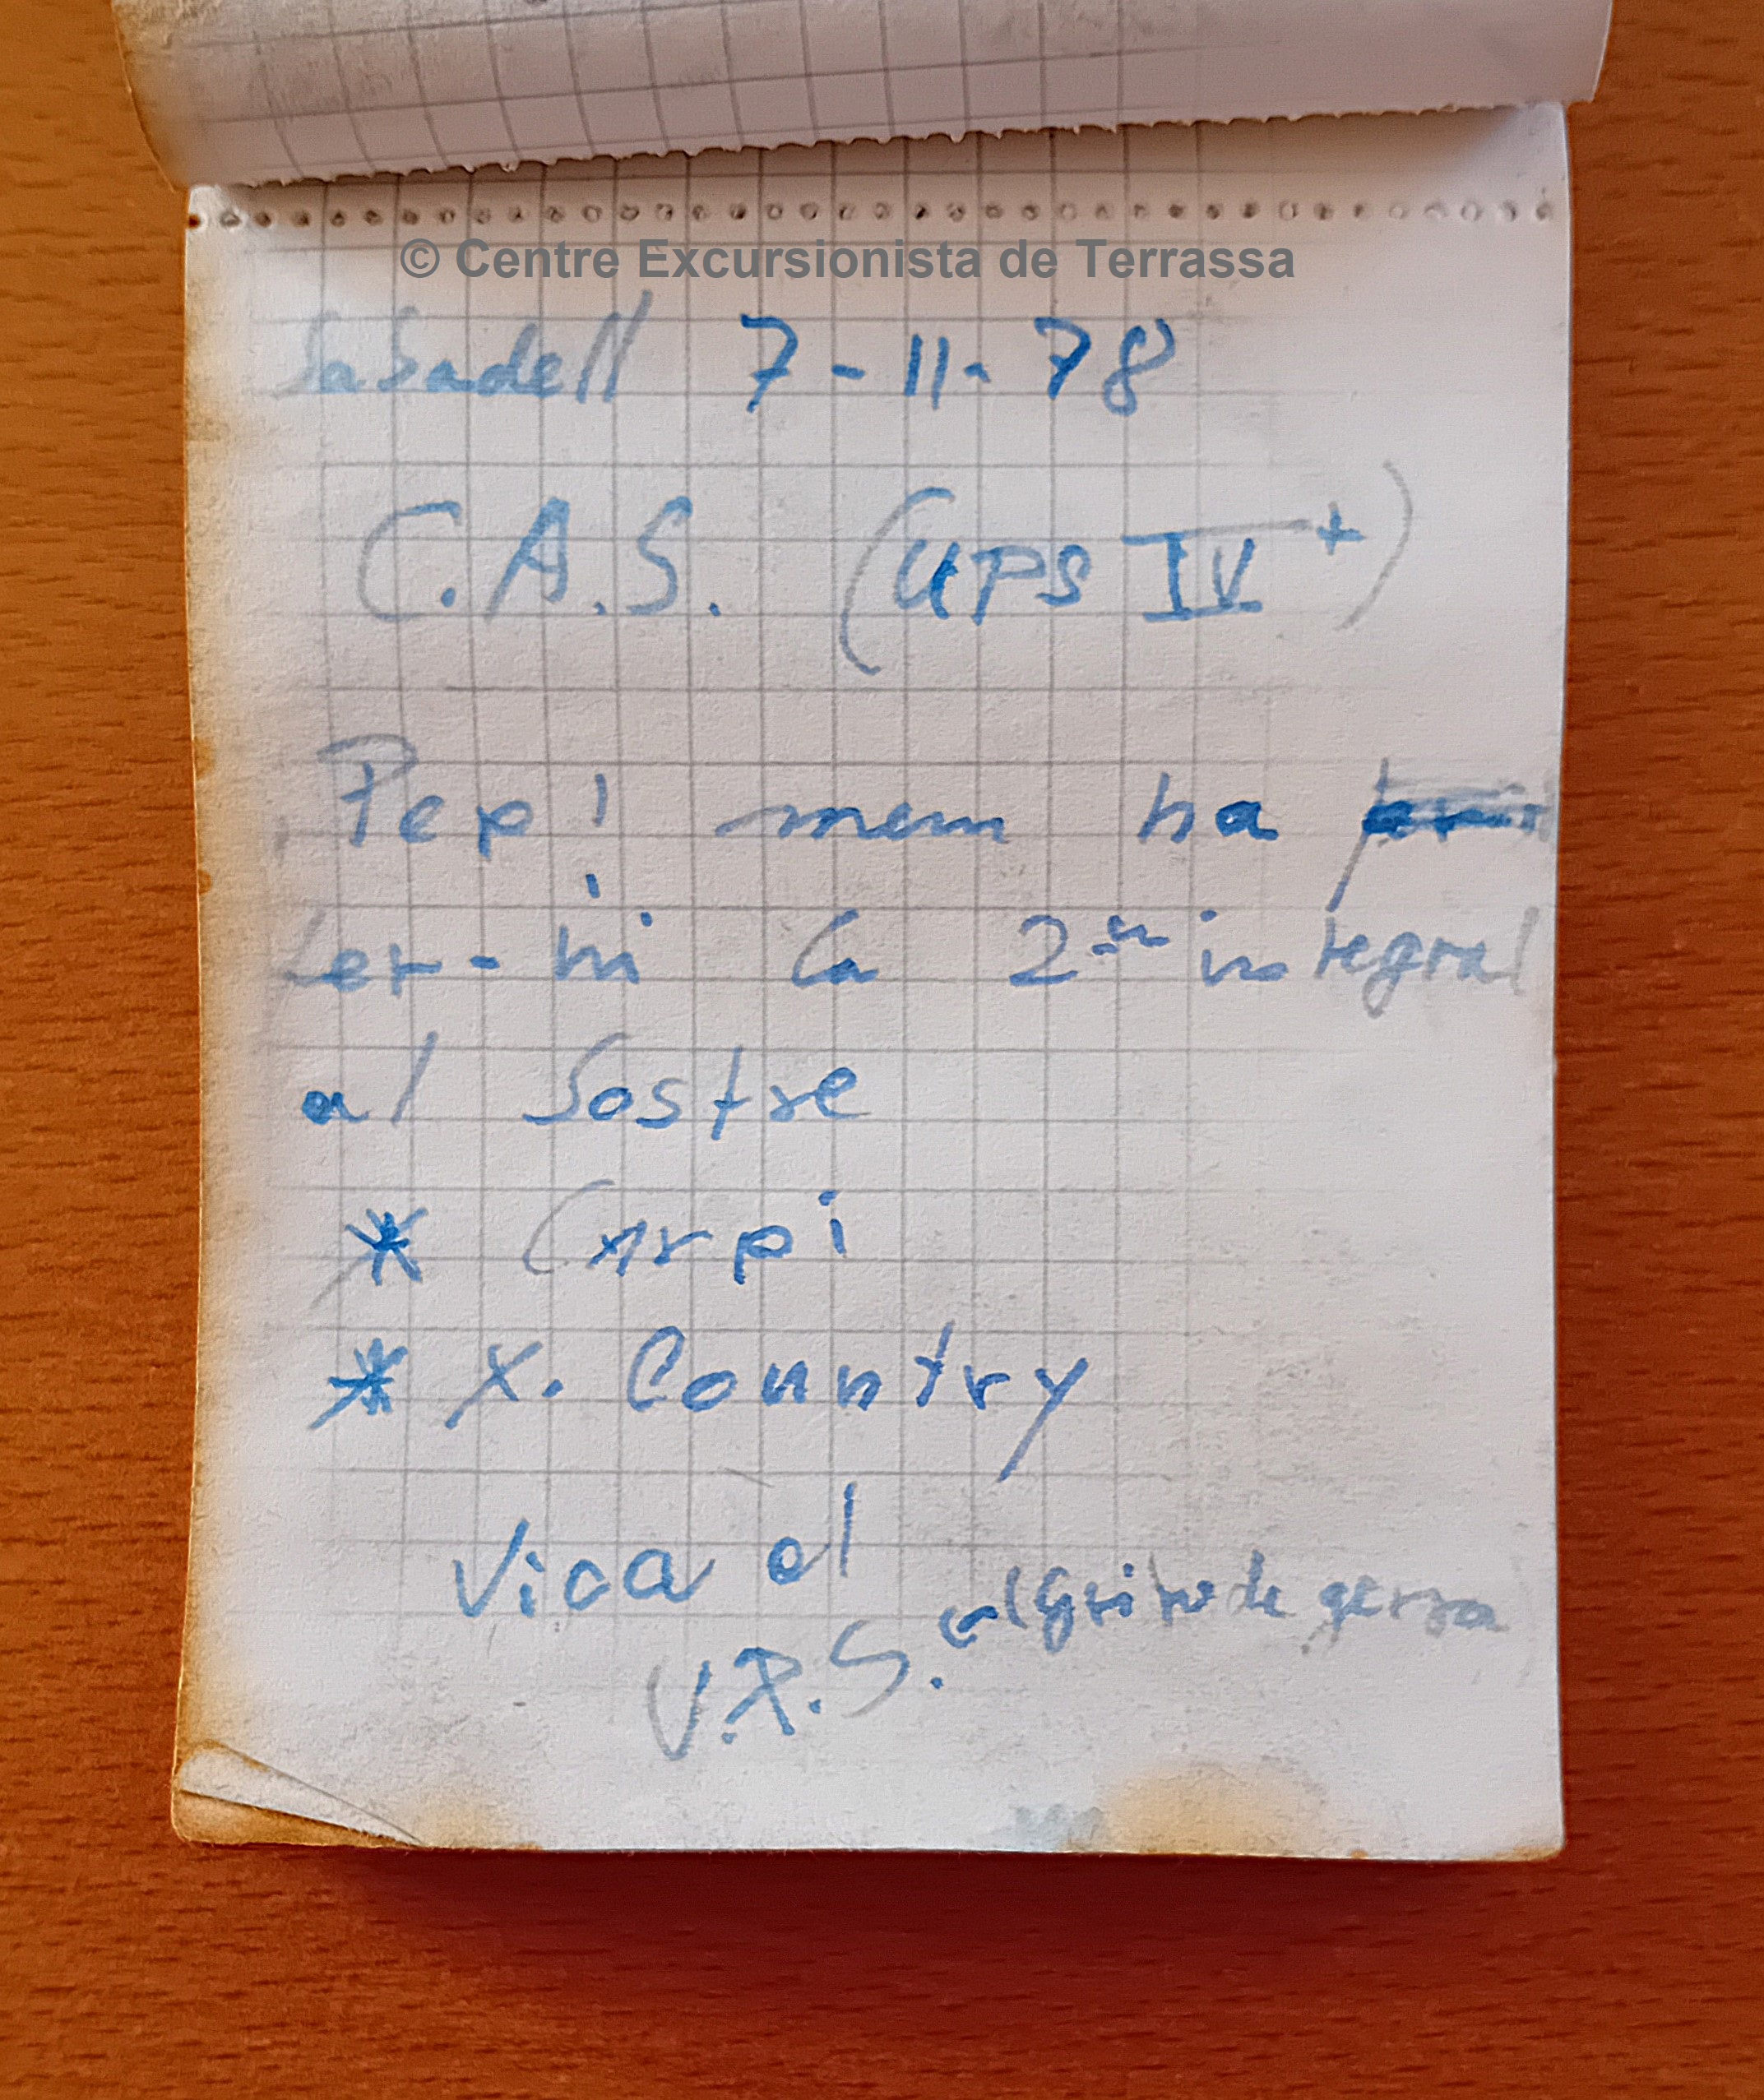 © Centre Excursionista de Terrassa
Sabadell 7-11-78
C.A.S. (UPS IV+)
Pepi mem ha
fer-hi la 2ª integral
al Sostre
* Carpi
* X. Country
Visca el
V.R.S. el de gerra